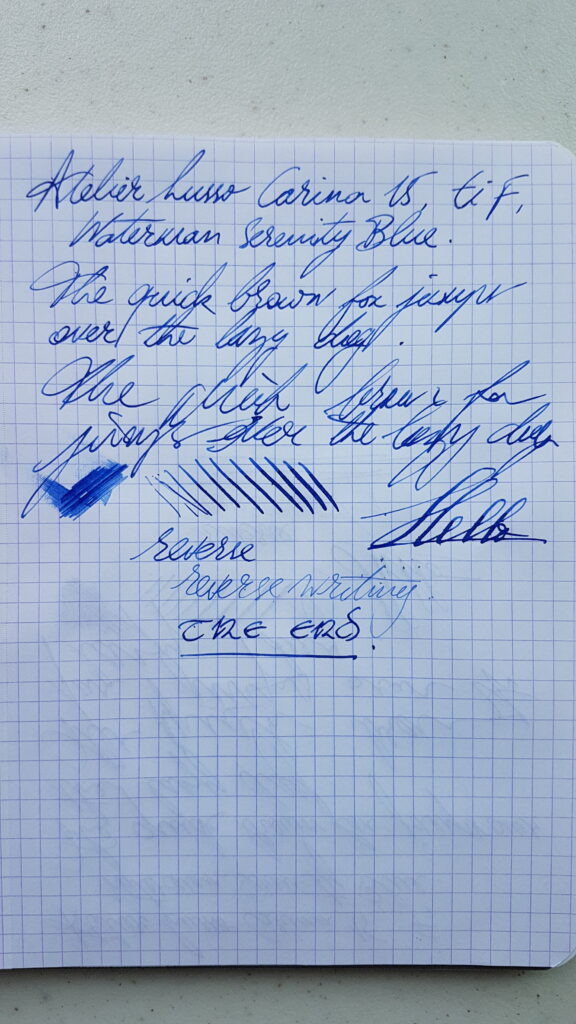 Atelier Lusso Carina 15, ti F,
Waterman Serenity Blue.
The quick brown fox jumps
over the lazy dog.
The quick brown fox
jumps over the lazy dog
Hello
reverse
reverse writing.
THE END.